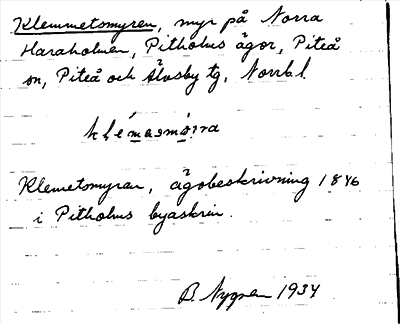 Klemmetsmyren, myr på Norra
Haraholmen, Pitholms ägor, Piteå
sn, Piteå och Älvsby tg, Norrb.l.
Klemetsmyran, ägobeskrivning 1846
i Pitholms byaskrin.
B. Nygren 1934